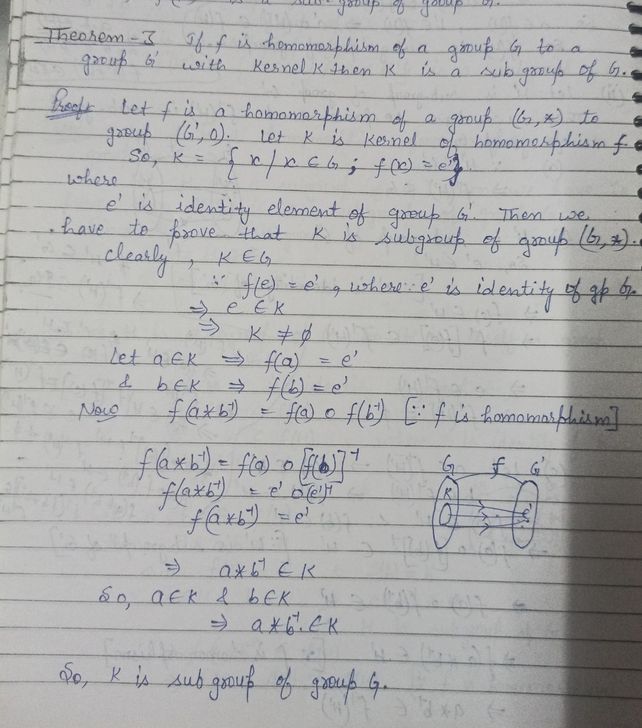 sub group of group G.
Theorem-3 If f is homomorphism of a group G to a
group G' with Kernel K then K is a sub group of G.
Proof:- Let f is a homomorphism of a group (G,*) to
group (G',o). Let K is Kernel of homomorphism f
So, K = { x / x ∈ G ; f(x) = e'}
where
e' is identity element of group G'. Then we
have to prove that K is subgroup of group (G,*).
clearly, K ∈ G
∵ f(e) = e', where e' is identity of gp G.
⇒ e ∈ K
⇒ K ≠ ∅
Let a ∈ K ⇒ f(a) = e'
& b ∈ K ⇒ f(b) = e'
Now f(a*b⁻¹) = f(a) o f(b⁻¹) [∵ f is homomorphism]
f(a*b⁻¹) = f(a) o [f(b)]⁻¹
f(a*b⁻¹) = e' o (e')⁻¹
f(a*b⁻¹) = e'
G f G'
K e'
⇒ a*b⁻¹ ∈ K
So, a ∈ K & b ∈ K
⇒ a*b⁻¹ ∈ K
So, K is sub group of group G.